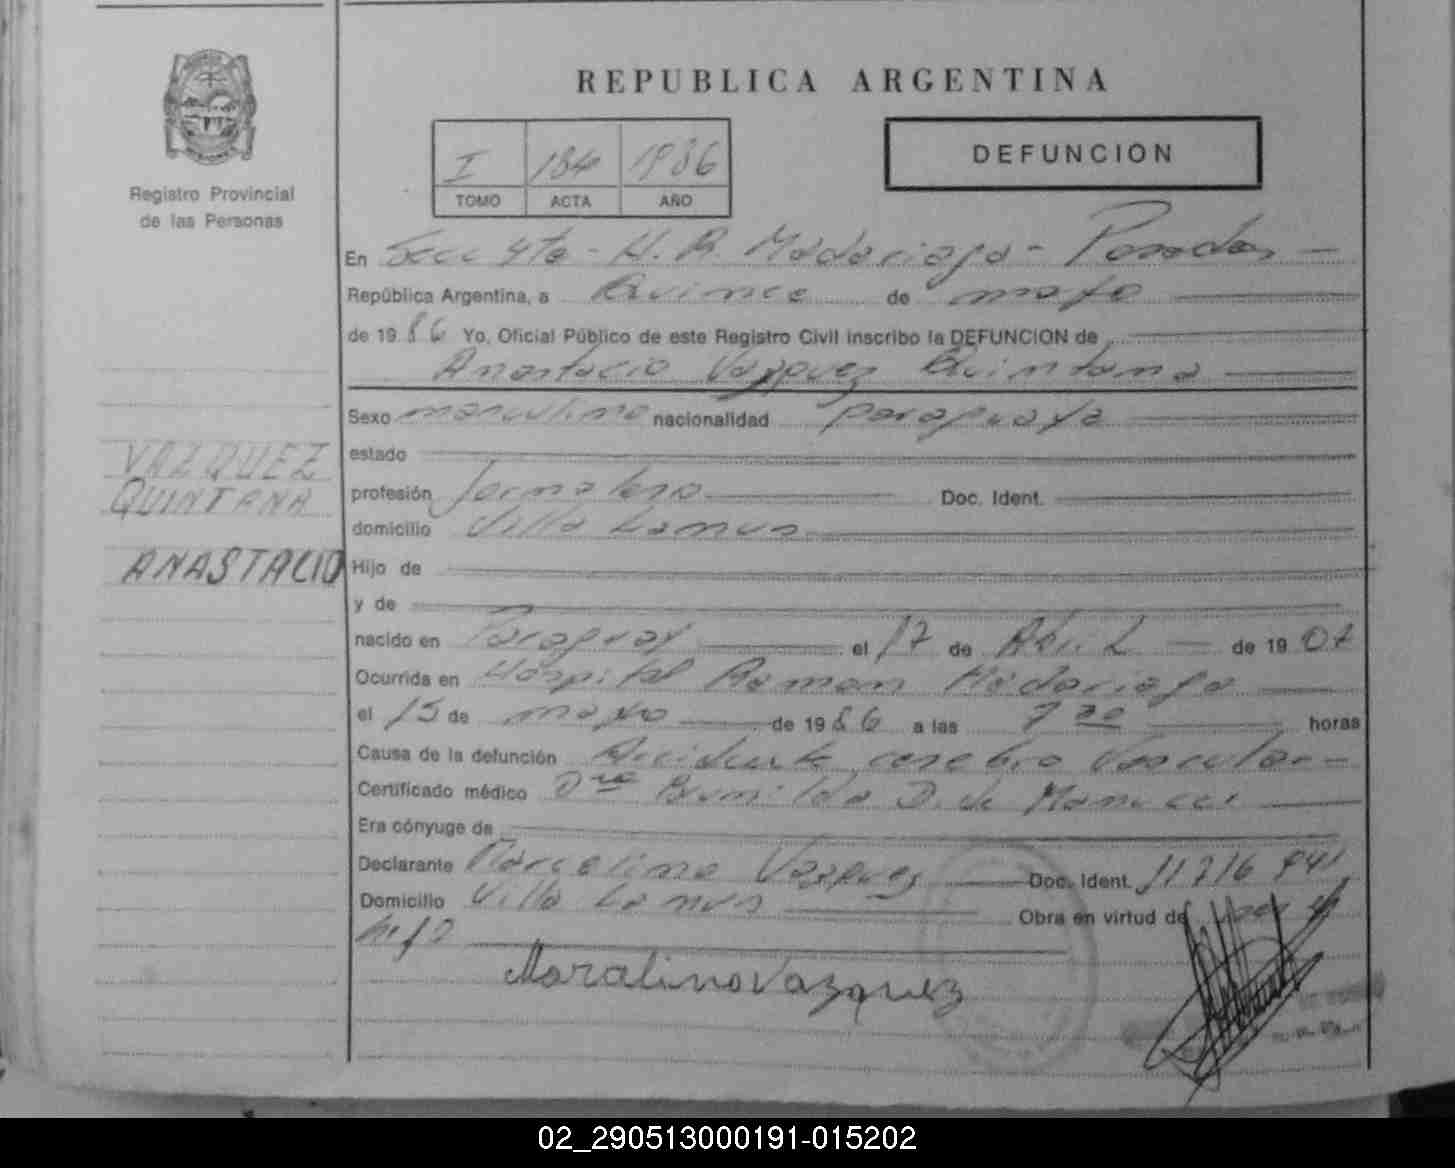 REPUBLICA ARGENTINA
I 184 1986
TOMO ACTA AÑO
DEFUNCION
Registro Provincial
de las Personas
En Secc 4ta - H. R. Madariaga - Posadas
República Argentina, a Quince de mayo
de 19 86 Yo, Oficial Público de este Registro Civil inscribo la DEFUNCION de
Anastacio Vazquez Quintana
Sexo masculino nacionalidad paraguaya
estado
VAZQUEZ
QUINTANA
ANASTACIO
profesión Jornalero Doc. Ident.
domicilio Villa Lanus
Hijo de
y de
nacido en Paraguay el 17 de Abril de 19 07
Ocurrida en Hospital Ramon Madariaga
el 15 de mayo de 19 86 a las 7 horas
Causa de la defunción Accidente cerebro Vascular
Certificado médico Dra D. de
Era cónyuge de
Declarante Marcelino Vazquez Doc. Ident.
Domicilio Villa Lanus Obra en virtud de
hijo
Marcelino Vazquez
02_290513000191-015202